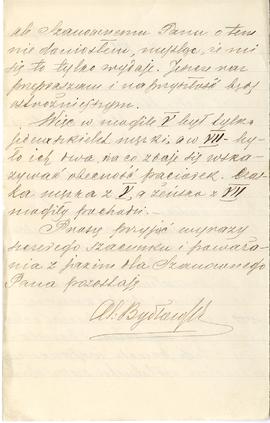 ale Szanownemu Panu o tem
nie doniosłem, myśląc, że mi
się to tylko wydaje. Jeszcze raz
przepraszam i na przyszłość będę
ostrożniejszym.
Więc w mogile V był tylko
jeden szkielet męzki, a w VII by-
ło ich dwa, na co zdaje się wska-
zywać obecność paciorek. Cza-
ka męzka z V, a żeńska z VII
mogiły pochodzi.
Proszę przyjąć wyrazy
szczerego szacunku i poważa-
nia z jakim dla Szanownego
Pana pozostaję